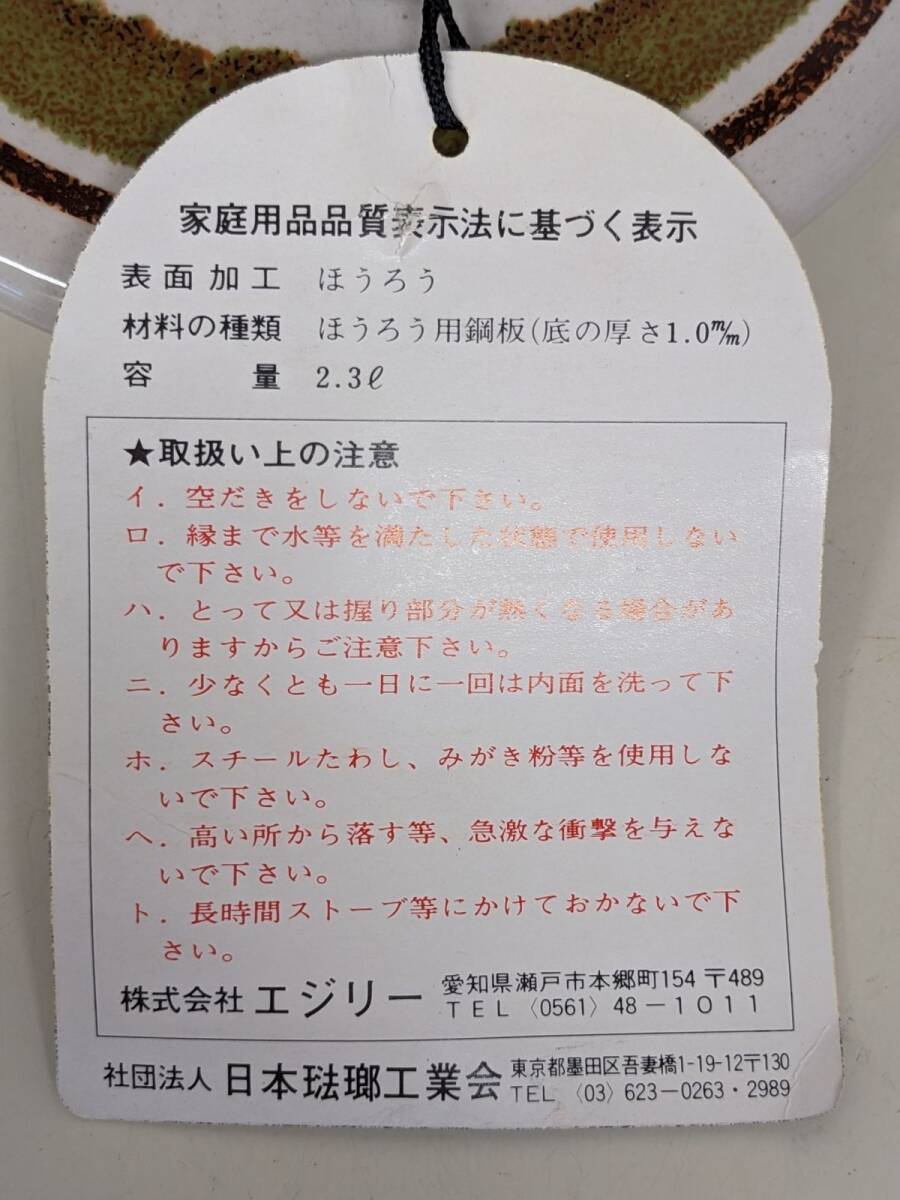 家庭用品品質表示法に基づく表示
表面加工 ほうろう
材料の種類 ほうろう用鋼板(底の厚さ1.0m/m)
容量 2.3ℓ
★取扱い上の注意
イ．空だきをしないで下さい。
ロ．縁まで水等を満たした状態で使用しない
で下さい。
ハ．とって又は握り部分が熱くなる場合があ
りますからご注意下さい。
ニ．少なくとも一日に一回は内面を洗って下
さい。
ホ．スチールたわし、みがき粉等を使用しな
いで下さい。
ヘ．高い所から落す等、急激な衝撃を与えな
いで下さい。
ト．長時間ストーブ等にかけておかないで下
さい。
株式会社 エジリー 愛知県瀬戸市本郷町154 〒489
TEL〈0561〉48－1011
社団法人 日本琺瑯工業会 東京都墨田区吾妻橋1-19-12〒130
TEL〈03〉623－0263・2989